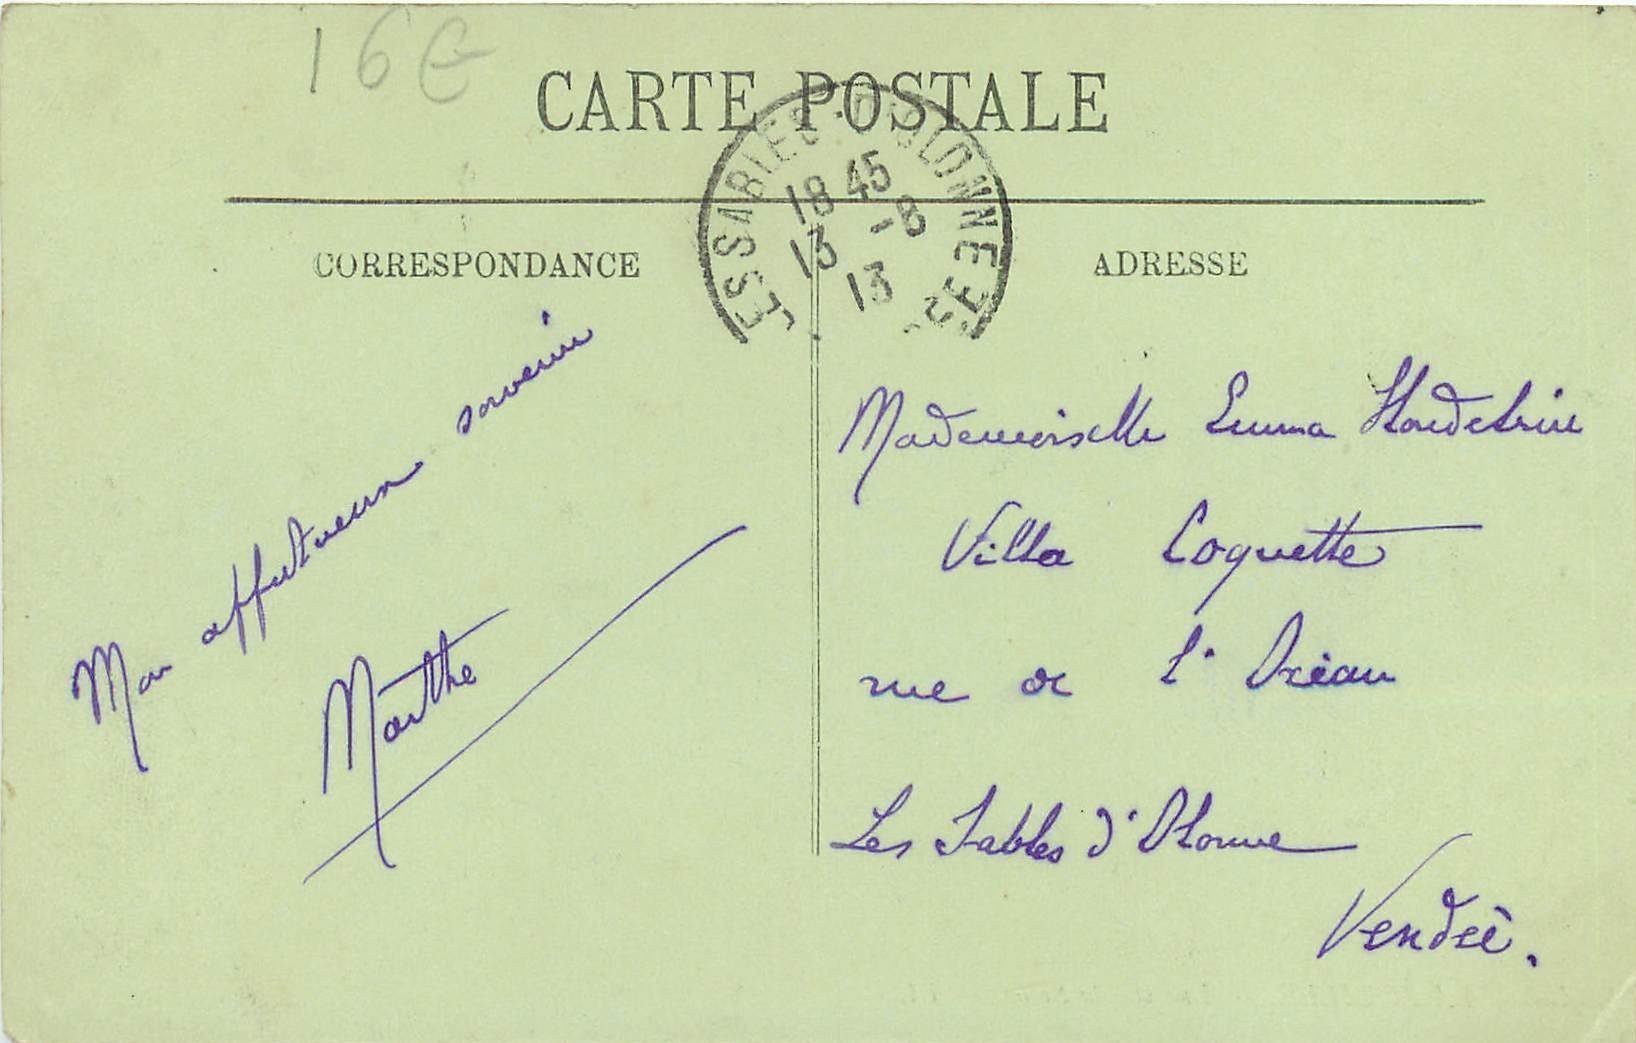 16€
CARTE POSTALE
LES SABLES D'OLONNE
18 45
13 -8
13
CORRESPONDANCE
ADRESSE
Mon affectueux souvenir
Marthe
Mademoiselle Emma
Villa Coquette
rue de l'Océan
Les Sables d'Olonne
Vendée.